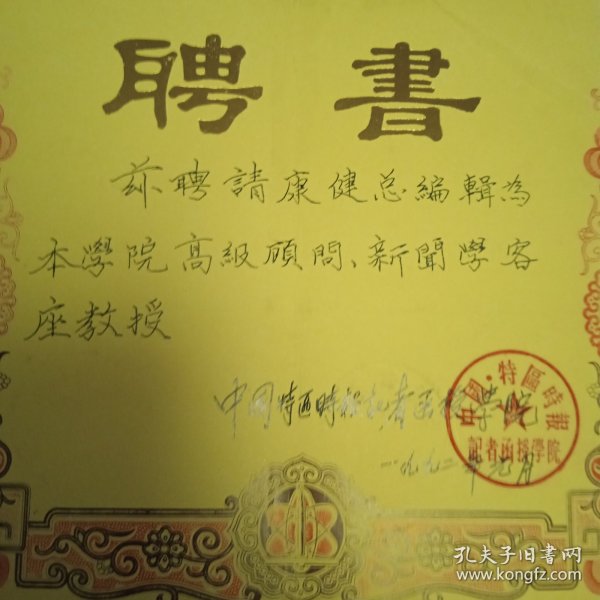 聘書
茲聘請康健总編輯為
本學院高級顾問、新聞學客
座教授
中国特区時报記者函授学院
一九九二年元月
中國·特區時報
記者函授學院
孔夫子旧书网
www.kongfz.com